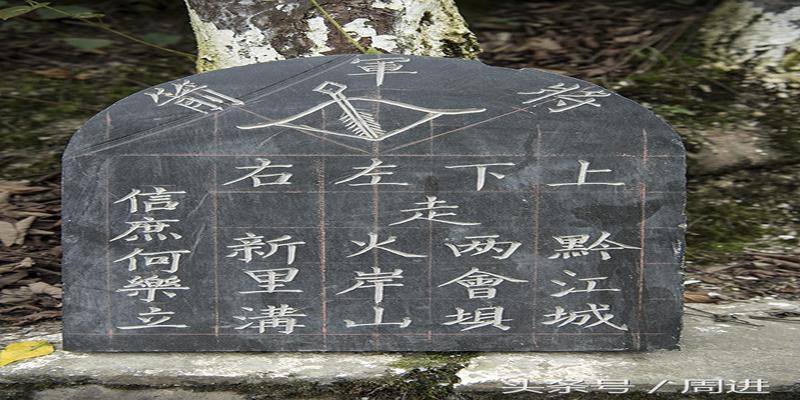 将軍箭
上 下 左 右
走
黔江城
两會垻
火岸山
新里溝
信庶何樂立
头条号 / 周进